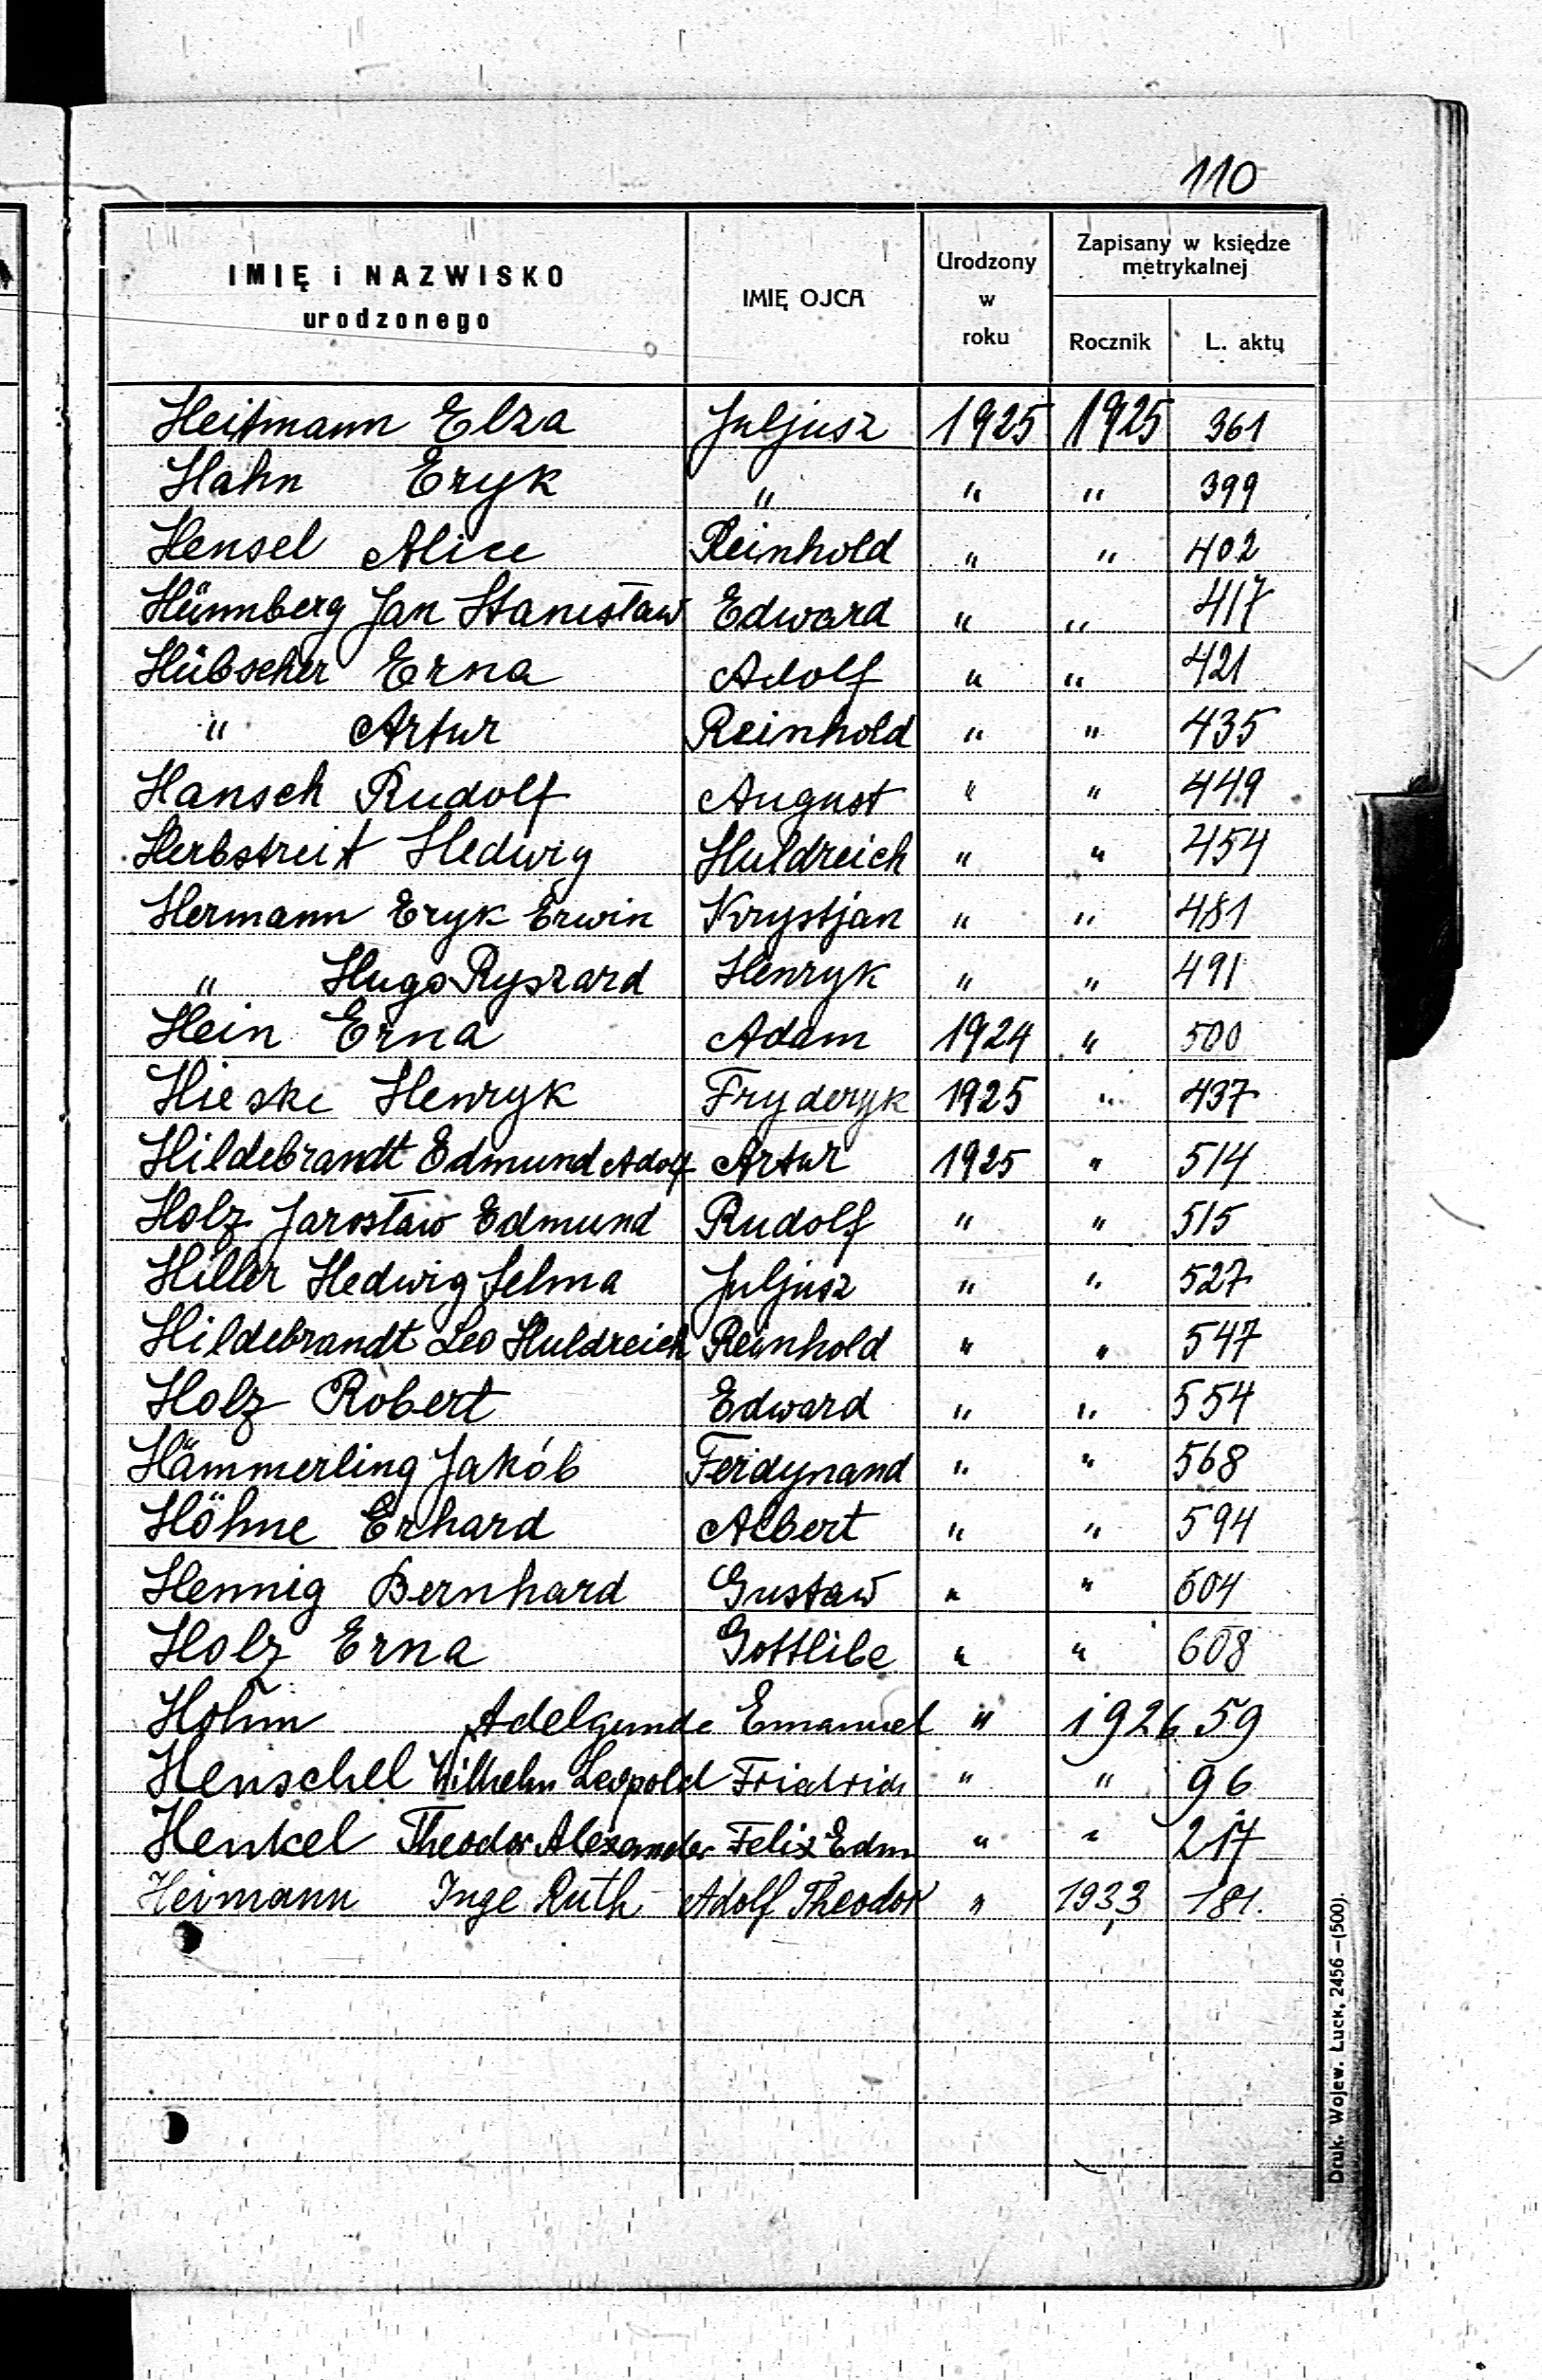 110
IMIĘ i NAZWISKO urodzonego | IMIĘ OJCA | Urodzony w roku | Zapisany w księdze metrykalnej
Rocznik | L. aktu
Heitmann Elza | Juljusz | 1925 | 1925 | 361
Hahn Eryk | " | " | " | 399
Hensel Alice | Reinhold | " | " | 402
Hünnberg Jan Stanisław | Edward | " | " | 417
Hübscher Erna | Adolf | " | " | 421
" Artur | Reinhold | " | " | 435
Hansch Rudolf | August | " | " | 449
Herbstreit Hedwig | Huldreich | " | " | 454
Hermann Eryk Erwin | Krystjan | " | " | 481
" Hugo Ryszard | Henryk | " | " | 491
Hein Erna | Adam | 1924 | " | 500
Hieske Henryk | Fryderyk | 1925 | " | 437
Hildebrandt Edmund Adolf | Artur | 1925 | " | 514
Holz Jarosław Edmund | Rudolf | " | " | 515
Hiller Hedwig Selma | Juljusz | " | " | 527
Hildebrandt Leo Huldreich | Reinhold | " | " | 547
Holz Robert | Edward | " | " | 554
Hämmerling Jakób | Ferdynand | " | " | 568
Höhne Erhard | Albert | " | " | 594
Hennig Bernhard | Gustaw | " | " | 604
Holz Erna | Gottlibe | " | " | 608
Hohm Adelgunde | Emanuel | " | 1926 | 59
Henschel Wilhelm Leopold | Friedrich | " | " | 96
Henkel Theodor Alexander | Felix Edm | " | " | 217
Heimann Inge Ruth | Adolf Theodor | " | 1933 | 181.
Druk. Wojew. Łuck, 2456 —(500).